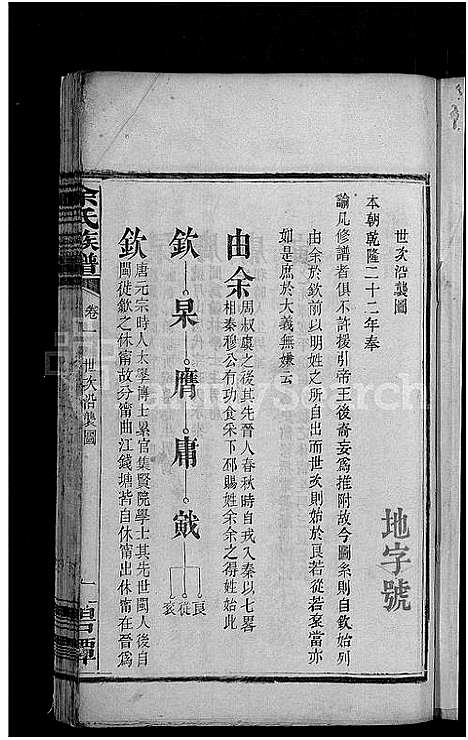 世次沿襲圖
本朝乾隆二十二年奉
諭凡修譜者俱不許援引帝王後裔妄爲推附故今圖系則自欽始列
由余於欽前以明姓之所自出而世次則始於良若從若袞當亦
如是庶於大義無嫌云
地字號
由余
周叔虞之後其先晉人春秋時自戎入秦以七畧
相秦穆公有功食采下邳賜姓余余之得姓始此
欽 杲 膺 庸 戭
良
從
袞
欽
唐元宗時人太學博士累官集賢院學士其先世閩人後自
閩徙歙之休甯故分甯曲江錢塘皆自休甯出休甯在晉爲
余氏族譜
卷一
世次沿襲圖
一